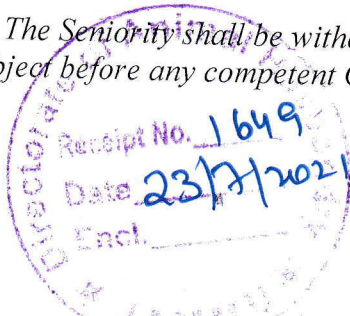 The Seniority shall be withe
bject before any competent C
Directorate of Animal
Receipt No. 1649
Date 23/7/2021
Encl.